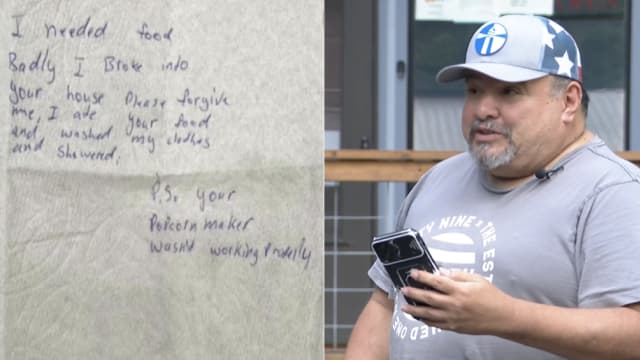 I needed food
Badly I Broke into
your house Please forgive
me, I ate your food
and, washed my clothes
and showered.
P.S. your
Popcorn maker
wasn't working Properly
TY NINE
THE EST
NED ONES